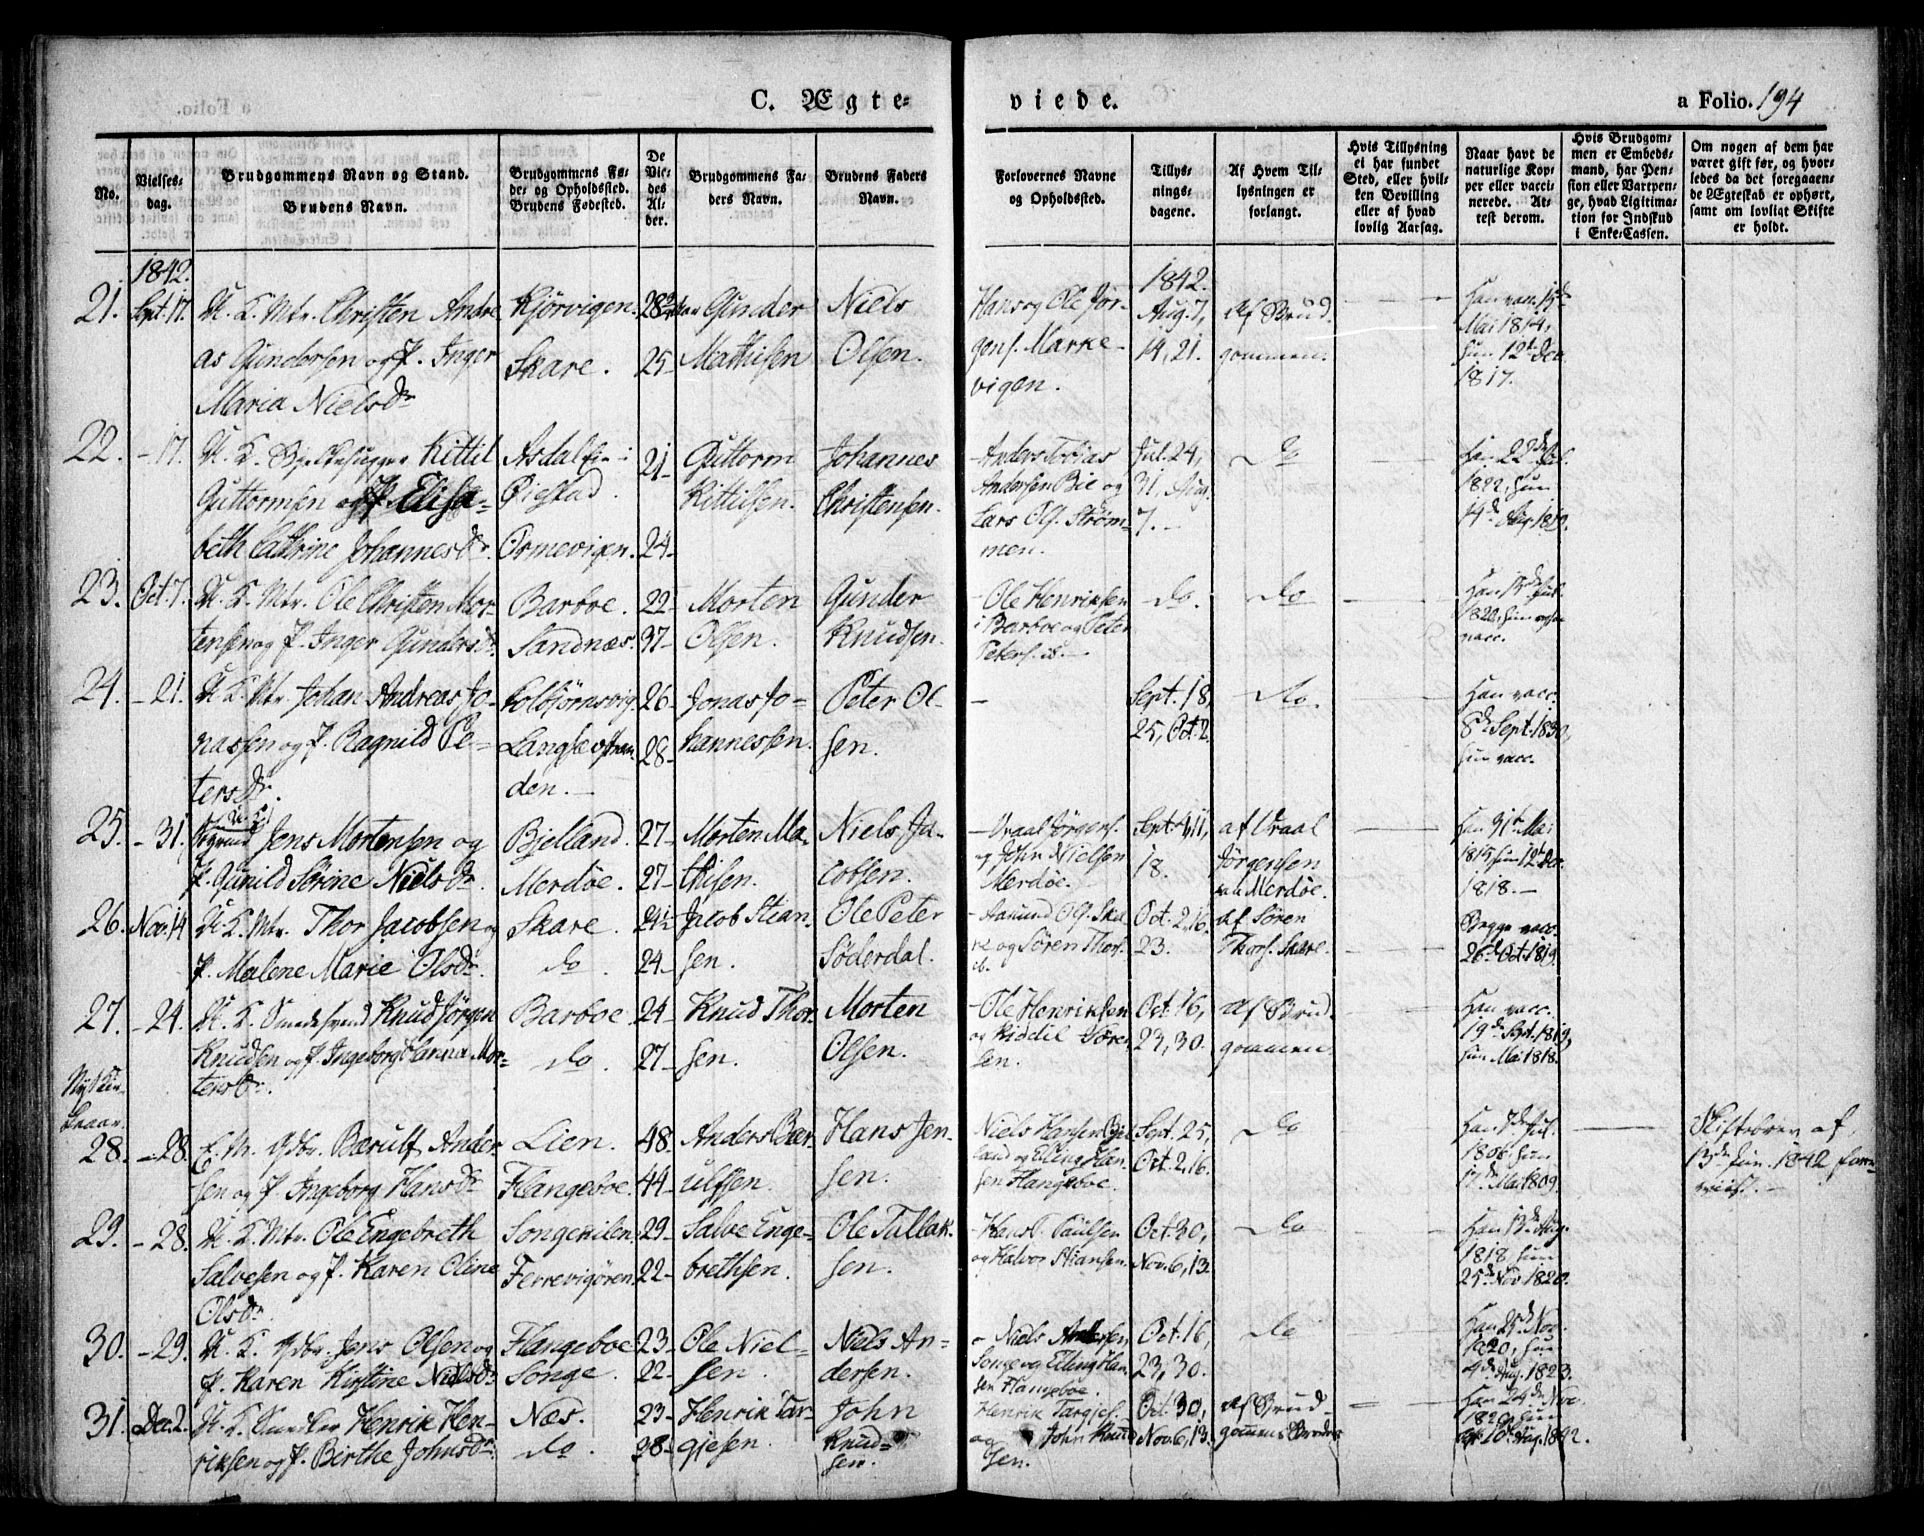 C. Ægte-
viede.
a Folio. 194
No.
Vielses-
dag.
Brudgommens Navn og Stand.
Brudens Navn.
Brudgommens Fø-
de- og Opholdssted.
Brudens Fødested.
De
Vie-
des
Al-
der.
Brudgommens Fa-
ders Navn.
Brudens Faders
Navn.
Forlovernes Navne
og Opholdssted.
Tillys-
nings-
dagene.
Af Hvem Til-
lysningen er
forlangt.
Hvis Tillysning
ei har fundet
Sted, eller hvil-
ken Bevilling
eller af hvad
lovlig Aarsag.
Naar havt de
naturlige Kop-
per eller vacci-
nerede. At-
test derom.
Hvis Brudgom-
men er Embeds-
mand, har Pen-
sion eller Vartpen-
ge, hvad Ligitima-
tion for Indskud
i Enke-Cassen.
Om nogen af dem har
været gift før, og hvor-
ledes da det foregaaen-
de Ægteskab er ophørt,
samt om lovligt Skifte
er holdt.
1842.
1842.
21. Sept. 17. U. K. Mtr. Christen Andre
as Gundersen og P. Inger
Maria Nielsdr
Kjörvigen.
Skare.
28
25
Gunder
Mathisen
Niels
Olsen.
Hans og Ole Jör-
gens. Marke-
vigen.
Aug. 7,
14, 21.
Af Brud-
gommen.
Han vacc. 15de
Mai 1814,
hun 12te Dec.
1817.
22. - 17. U. K. Kittil
Guttormsen og P. Elisa-
beth Cathrine Johannesdr.
Asdal i
Öiestad.
Ormevigen.
21-
24-
Guttorm
Kittilsen.
Johannes
Christensen.
Anders Tobias
Andersen Bie og
Lars Ols. Ström-
men.
Jul. 24,
31, Aug.
7.-
Do
Han 22de Jul.
1822, hun
14de Aug. 1819.
23. Oct. 7. U. K. Mtr. Ole Christen Mor-
tensen og P. Inger Gundersdr.
Barboe.
Sandnæs.
22-
37-
Morten
Olsen.
Gunder
Knudsen.
- Ole Henriksen
i Barboe og Peter
Peters. ib.-
Do.
Do
Han 15de Jul.
1822, hun ogsaa
vacc.
24. - 21. U. K. Mtr. Johan Andreas Jo-
nassen og P. Ragnild Pe-
tersdr.
Kolbjörnsvig.
Langsævstran-
den.-
26-
28-
Jonas Jo-
hannessen.
Peter Ol-
sen.
Sept. 18,
25, Oct. 2.
Do.
Han vacc.
8de Sept. 1830,
hun vacc.
25. - 31. U. K.
Jens Mortensen og
P. Gunild Sörine Nielsdr.
Bjelland.
Merdöe.
27-
27-
Morten Ma-
thisen.
Niels Ja-
cobsen.
- Vraal Jörgens.
og John Nielsen
Merdöe.
Sept. 4, 11,
18.
af Vraal
Jörgensen
Merdöe.
Han 31te Mai
1815, hun 12te Dec.
1818.-
26. Nov. 14 U. K. Mtr. Thor Jacobsen og
P. Malene Marie Olsdr.
Skare.
Do.
24½
24-
Jacob Stean-
sen.
Ole Peter
Söderdal.
- Aasund Ols. Ska-
re og Sören Thors.
ib.
Oct. 2, 16.
23.
af Sören
Thors. Skare.
Begge vacc.
26de Oct. 1819.
27. - 24. U. K. Smedesvend Knud Jörgen
Knudsen og P. Ingeborg Hanna Mor-
tensdr.
Barboe.
Do.
24-
27-
Knud Thor-
sen.
Morten
Olsen.
- Ole Henriksen
og Kiddil Söre-
sen.
Oct. 16,
23, 30.
Af Brud-
gommen
Han vacc.
19de Sept. 1819,
hun Mai 1818.
28. - 28. E. M. Gdbr. Bærulf Ander
sen og P. Ingeborg Hansdr
Lien.
Flangeboe.
48-
44-
Anders Bær-
ulfsen.
Hans Jen-
sen.
Niels Hansen Bjel-
land og Elling Han-
sen Flangeboe.
Sept. 25,
Oct. 2, 16.
Do
Han 7de Jul.
1806. hun
17de Mai 1809.
Skiftebrev af
13de Jun. 1842 forevist.-
29. - 28. U. K. Mtr. Ole Engebreth
Salvesen og P. Karen Oline
Olsdr
Songekilen.
Ferrevigören.
29-
22-
Salve Enge-
brethsen.
Ole Tallak-
sen.
Paulsen
og Halvor Stiansen.
Oct. 30,
Nov. 6, 13.
Do
Han 13de Aug.
1818. hun
25de Nov. 1820.
30. - 29. U. K. Gdbr. Jens Olsen og
P. Karen Kirstine Nielsdr
Flangeboe
Songe.
23-
22-
Ole Niel-
sen.
Niels An-
dersen.
Niels Andersen
Songe og Elling Han-
sen Flangeboe.
Oct. 16,
23, 30.
Do
Han 25de Nov.
1820, hun
4de Aug. 1823.
31. Dec. 2. U. K. Henrik Hen-
riksen og P. Birthe Johnsdr.
Næs.
Do.
23-
28-
Henrik Tar-
gjesen.
John
Knud-
sen.
Henrik Targjes.
og John Knud
sen.
Oct. 30,
Nov. 6, 13.
Af Brud-
gommens Broder
Han 24de Nov.
1820, hun
10de Aug. 1822.